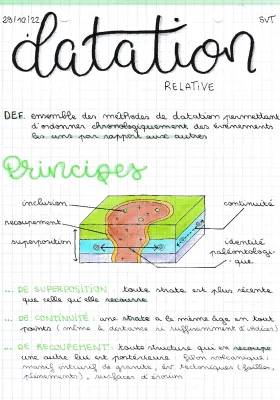 29/12/22
SVT
datation
RELATIVE
DEF. ensemble des méthodes de datation permettant
d'ordonner chronologiquement des événements
les uns par rapport aux autres
Principes
inclusion
continuité
recoupement
superposition
identité
paléontologi-
que
... DE SUPERPOSITION : toute strate est plus récente
que celle qu'elle recouvre
... DE CONTINUITÉ : une strate a le même âge en tout
points (même à distance si suffisamment d'indices)
... DE RECOUPEMENT: toute structure qui en recoupe
une autre lui est postérieure : filon volcanique,
massif intrusif de granite, évt tectoniques (failles,
plissements), surfaces d'érosion